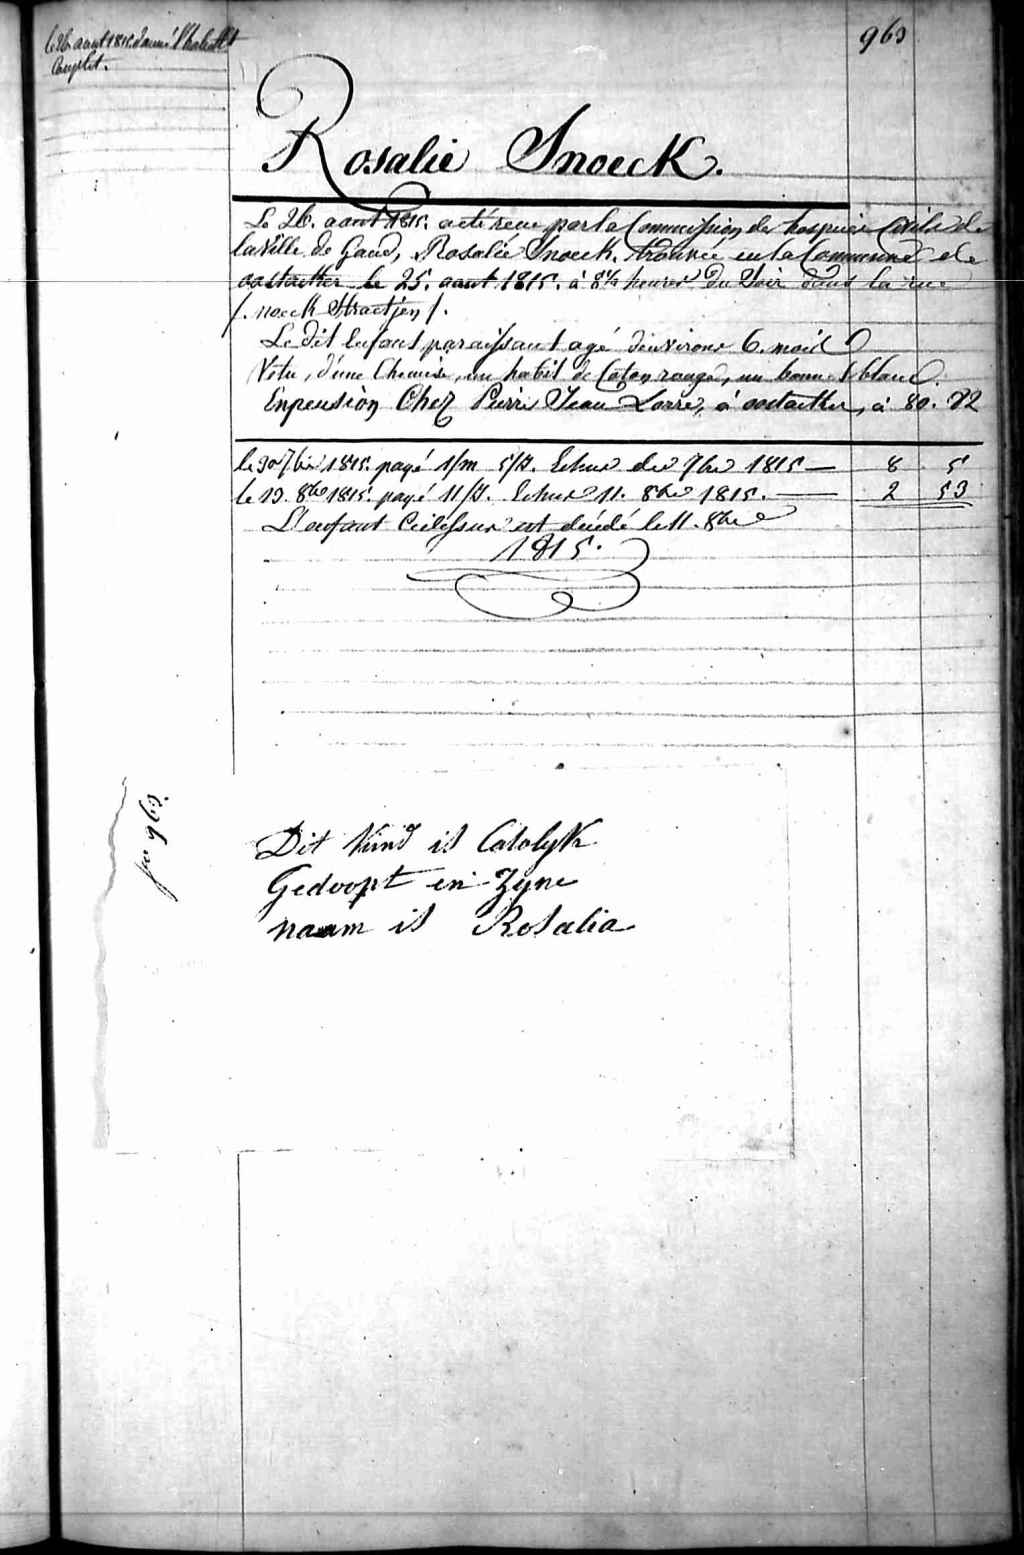 le 26 aout 1815 donné l'habillt
Complet.
963
Rosalie Snoeck.
Le 26. aout 1815. a été recue par la Commission des hospices Civils de
la Ville de Gand, Rosalie Snoeck, trouvée en la Commune de
oostacker le 25. aout 1815. à 8¼ heures du Soir dans la rue
/. noeck Straetjen /.
Le dit Enfant paraissant agé d'environ 6. mois
Vetu, d'une Chemise, un habit de Coton rouge, un bonnet blanc.
En pension Chez Pierre Jean Lorré, à oostacker, à 80. 72
le 30 7bre 1815. payé 1/m 5/J. Echus de 7bre 1815 — 8 5
le 13. 8bre 1815. payé 11/J. Echus 11. 8bre 1815. — 2 53
L'enfant Cidessus est décédé le 11. 8bre
1815.
963.
Dit kind is Catolyk
Gedoopt en Zyne
naam is Rosalia